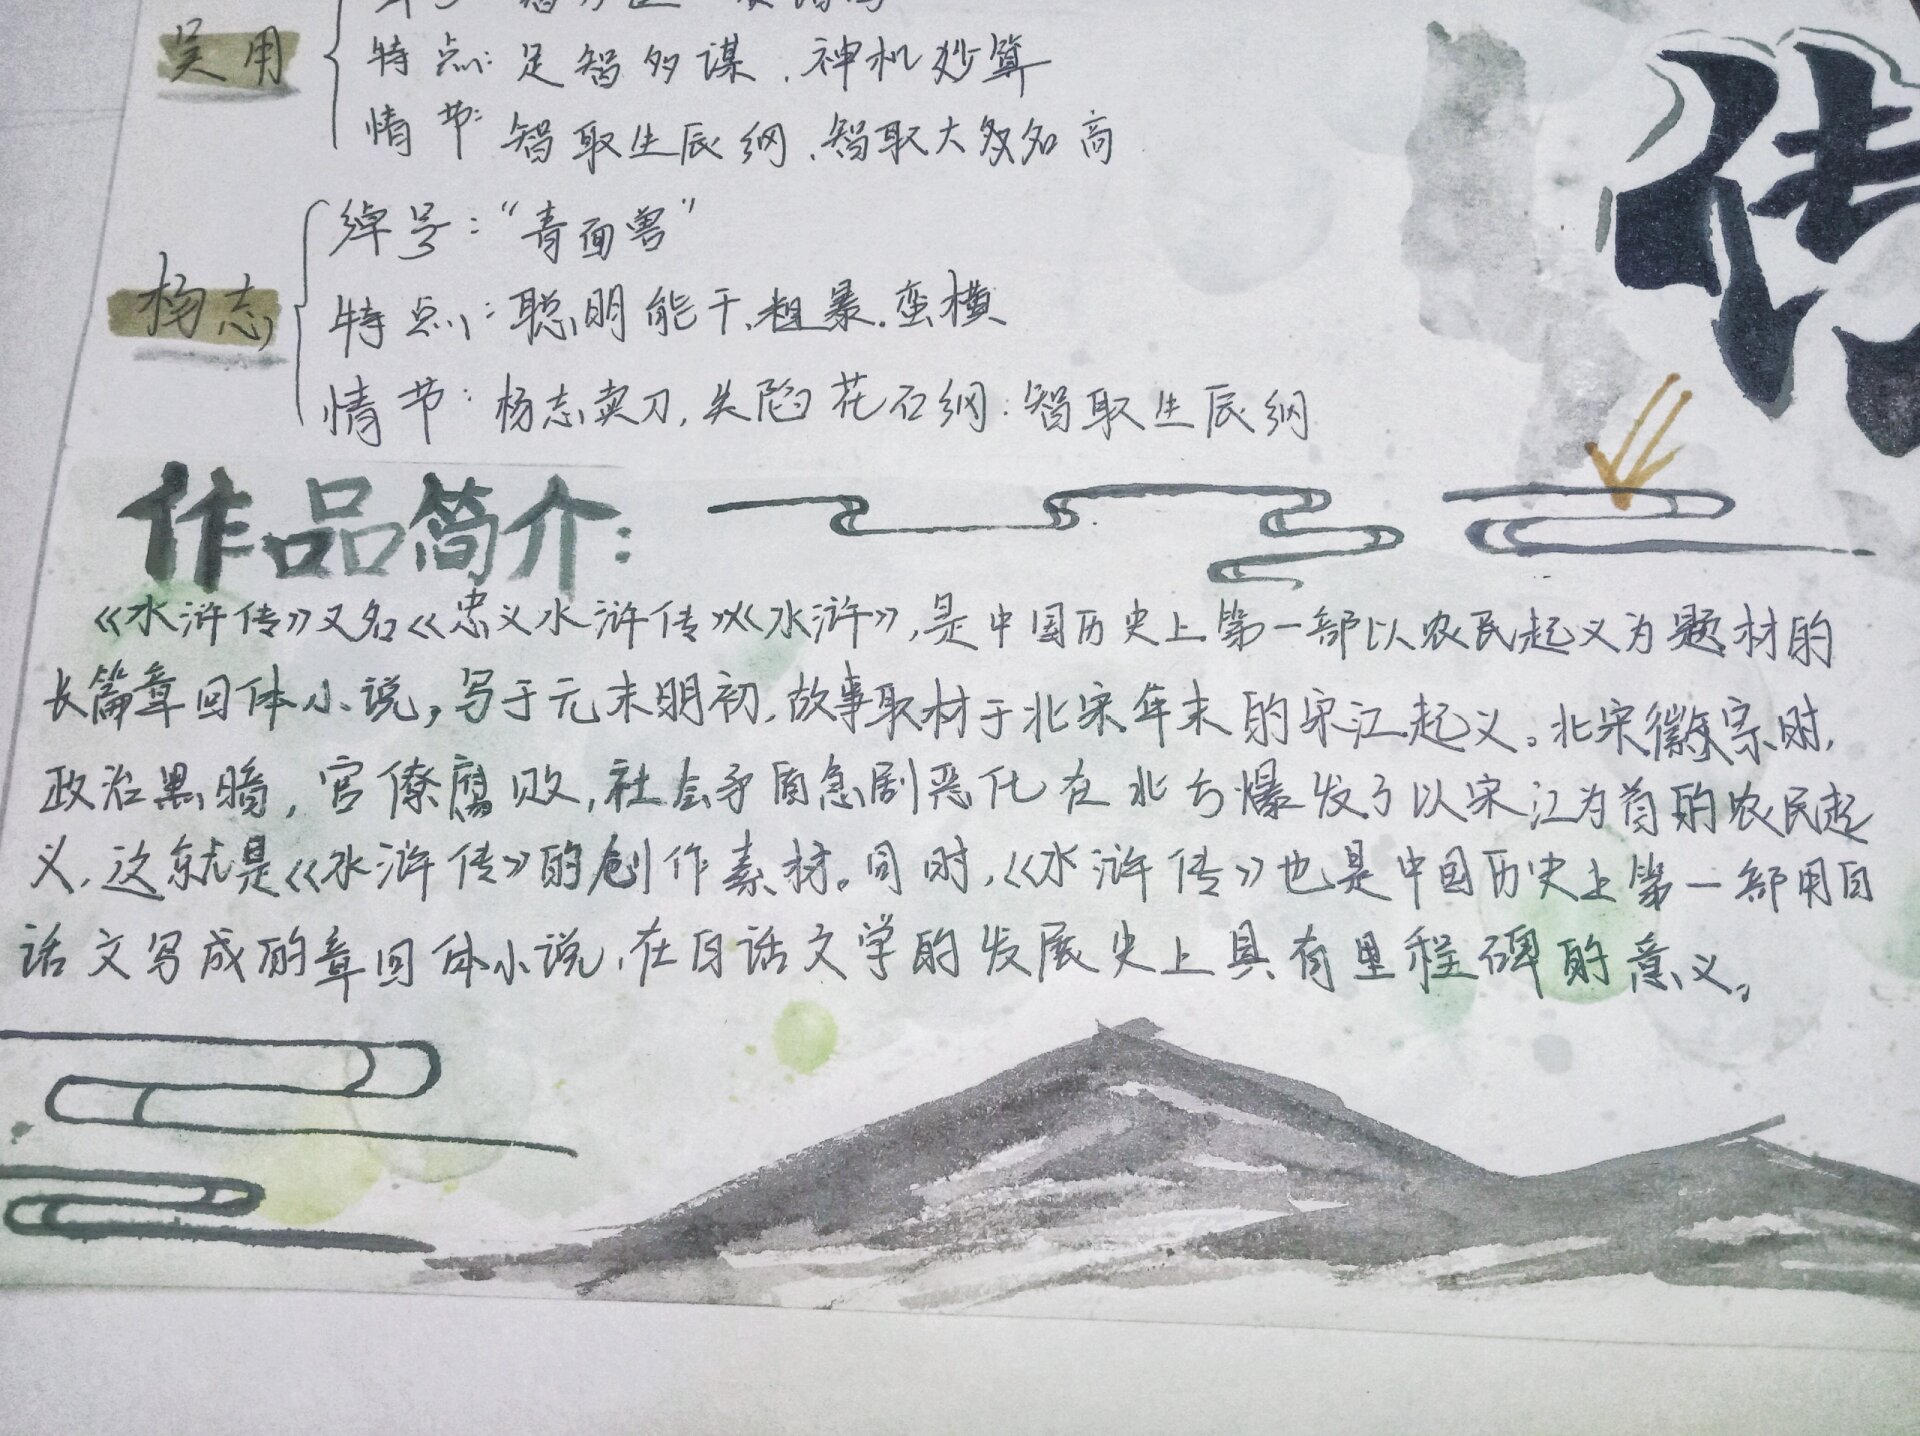 吴用
特点:足智多谋、神机妙算
情节:智取生辰纲、智取大名高
杨志
绰号:“青面兽”
特点:聪明能干、粗暴、蛮横
情节:杨志卖刀,失陷花石纲:智取生辰纲
传
作品简介:
《水浒传》又名《忠义水浒传》《水浒》,是中国历史上第一部以农民起义为题材的
长篇章回体小说,写于元末明初,故事取材于北宋年末的宋江起义。北宋徽宗时,
政治黑暗,官僚腐败,社会矛盾急剧恶化在北方爆发了以宋江为首的农民起
义,这就是《水浒传》的创作素材。同时,《水浒传》也是中国历史上第一部用白
话文写成的章回体小说,在白话文学的发展史上具有里程碑的意义。